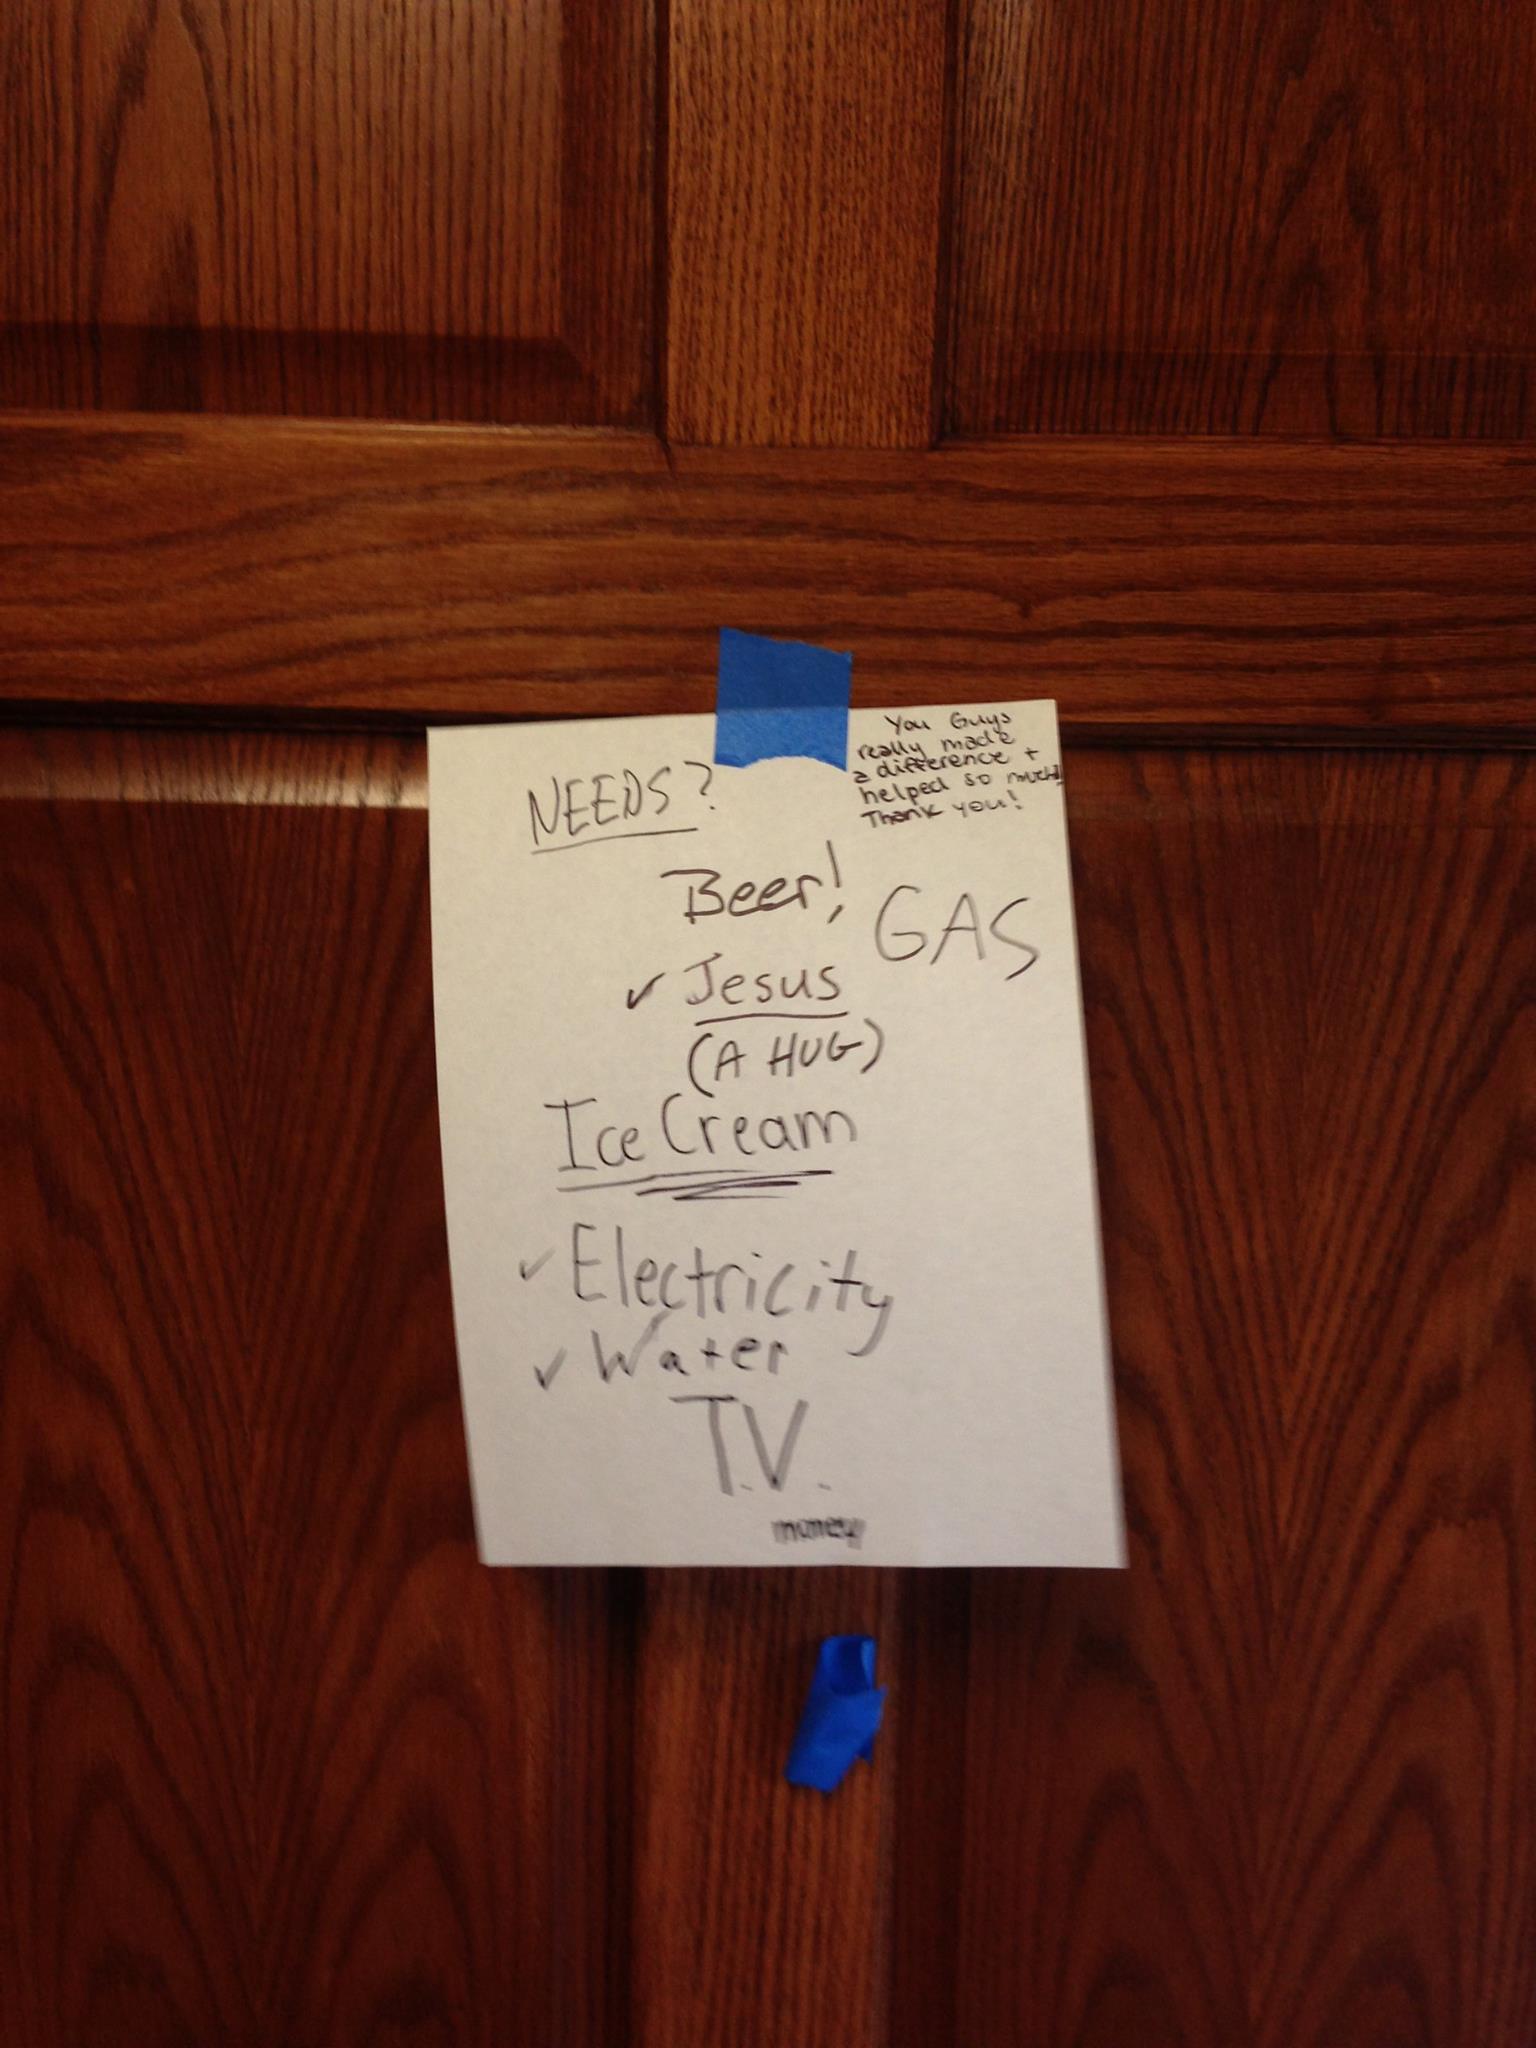 You Guys
really made
a difference +
helped so much!
Thank you!
NEEDS?
Beer!
GAS
✓ Jesus
(A HUG)
Ice Cream
✓ Electricity
✓ Water
T.V.
money